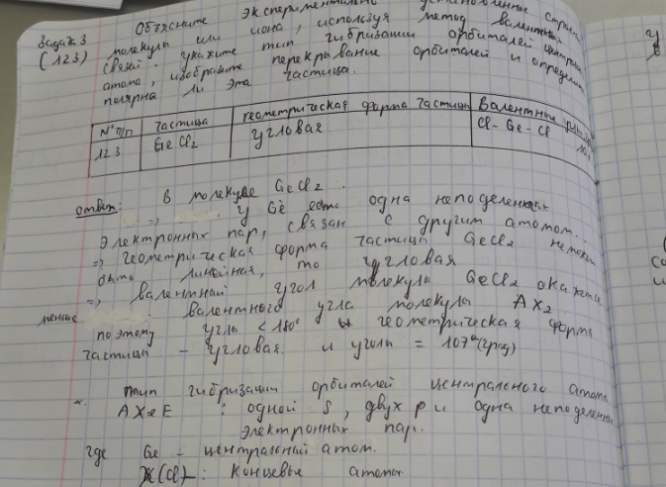 Задача 3 Объясните экспериментально установленные
(123) молекулы или иона, используя метод валентных
связей. укажите тип гибризации орбиталей
атома, изобразите перекрывание орбиталей и определите
полярна ли эта частица.
N° п/п частица геометрическая форма частицы Валентные
123 GeCl2 угловая Cl - Ge - Cl
ответ: в молекуле GeCl2.
=> у Ge есть одна неподеленных
электронных пар, связан с другим атомом.
=> геометрическая форма частицы GeCl2 не может
быть линейная, то угловая
=> валентный угол молекула GeCl2 окажется
меньше валентного угла молекула AX2
поэтому углы < 180° и геометрическая форма
частицы - угловая и уголь = 107° (град)
тип гибризации орбиталей центрального атома
AX2E : одной s, двух p и одна неподеленн
электронных пар.
где Ge - центральный атом.
X(Cl) : концевые атомы